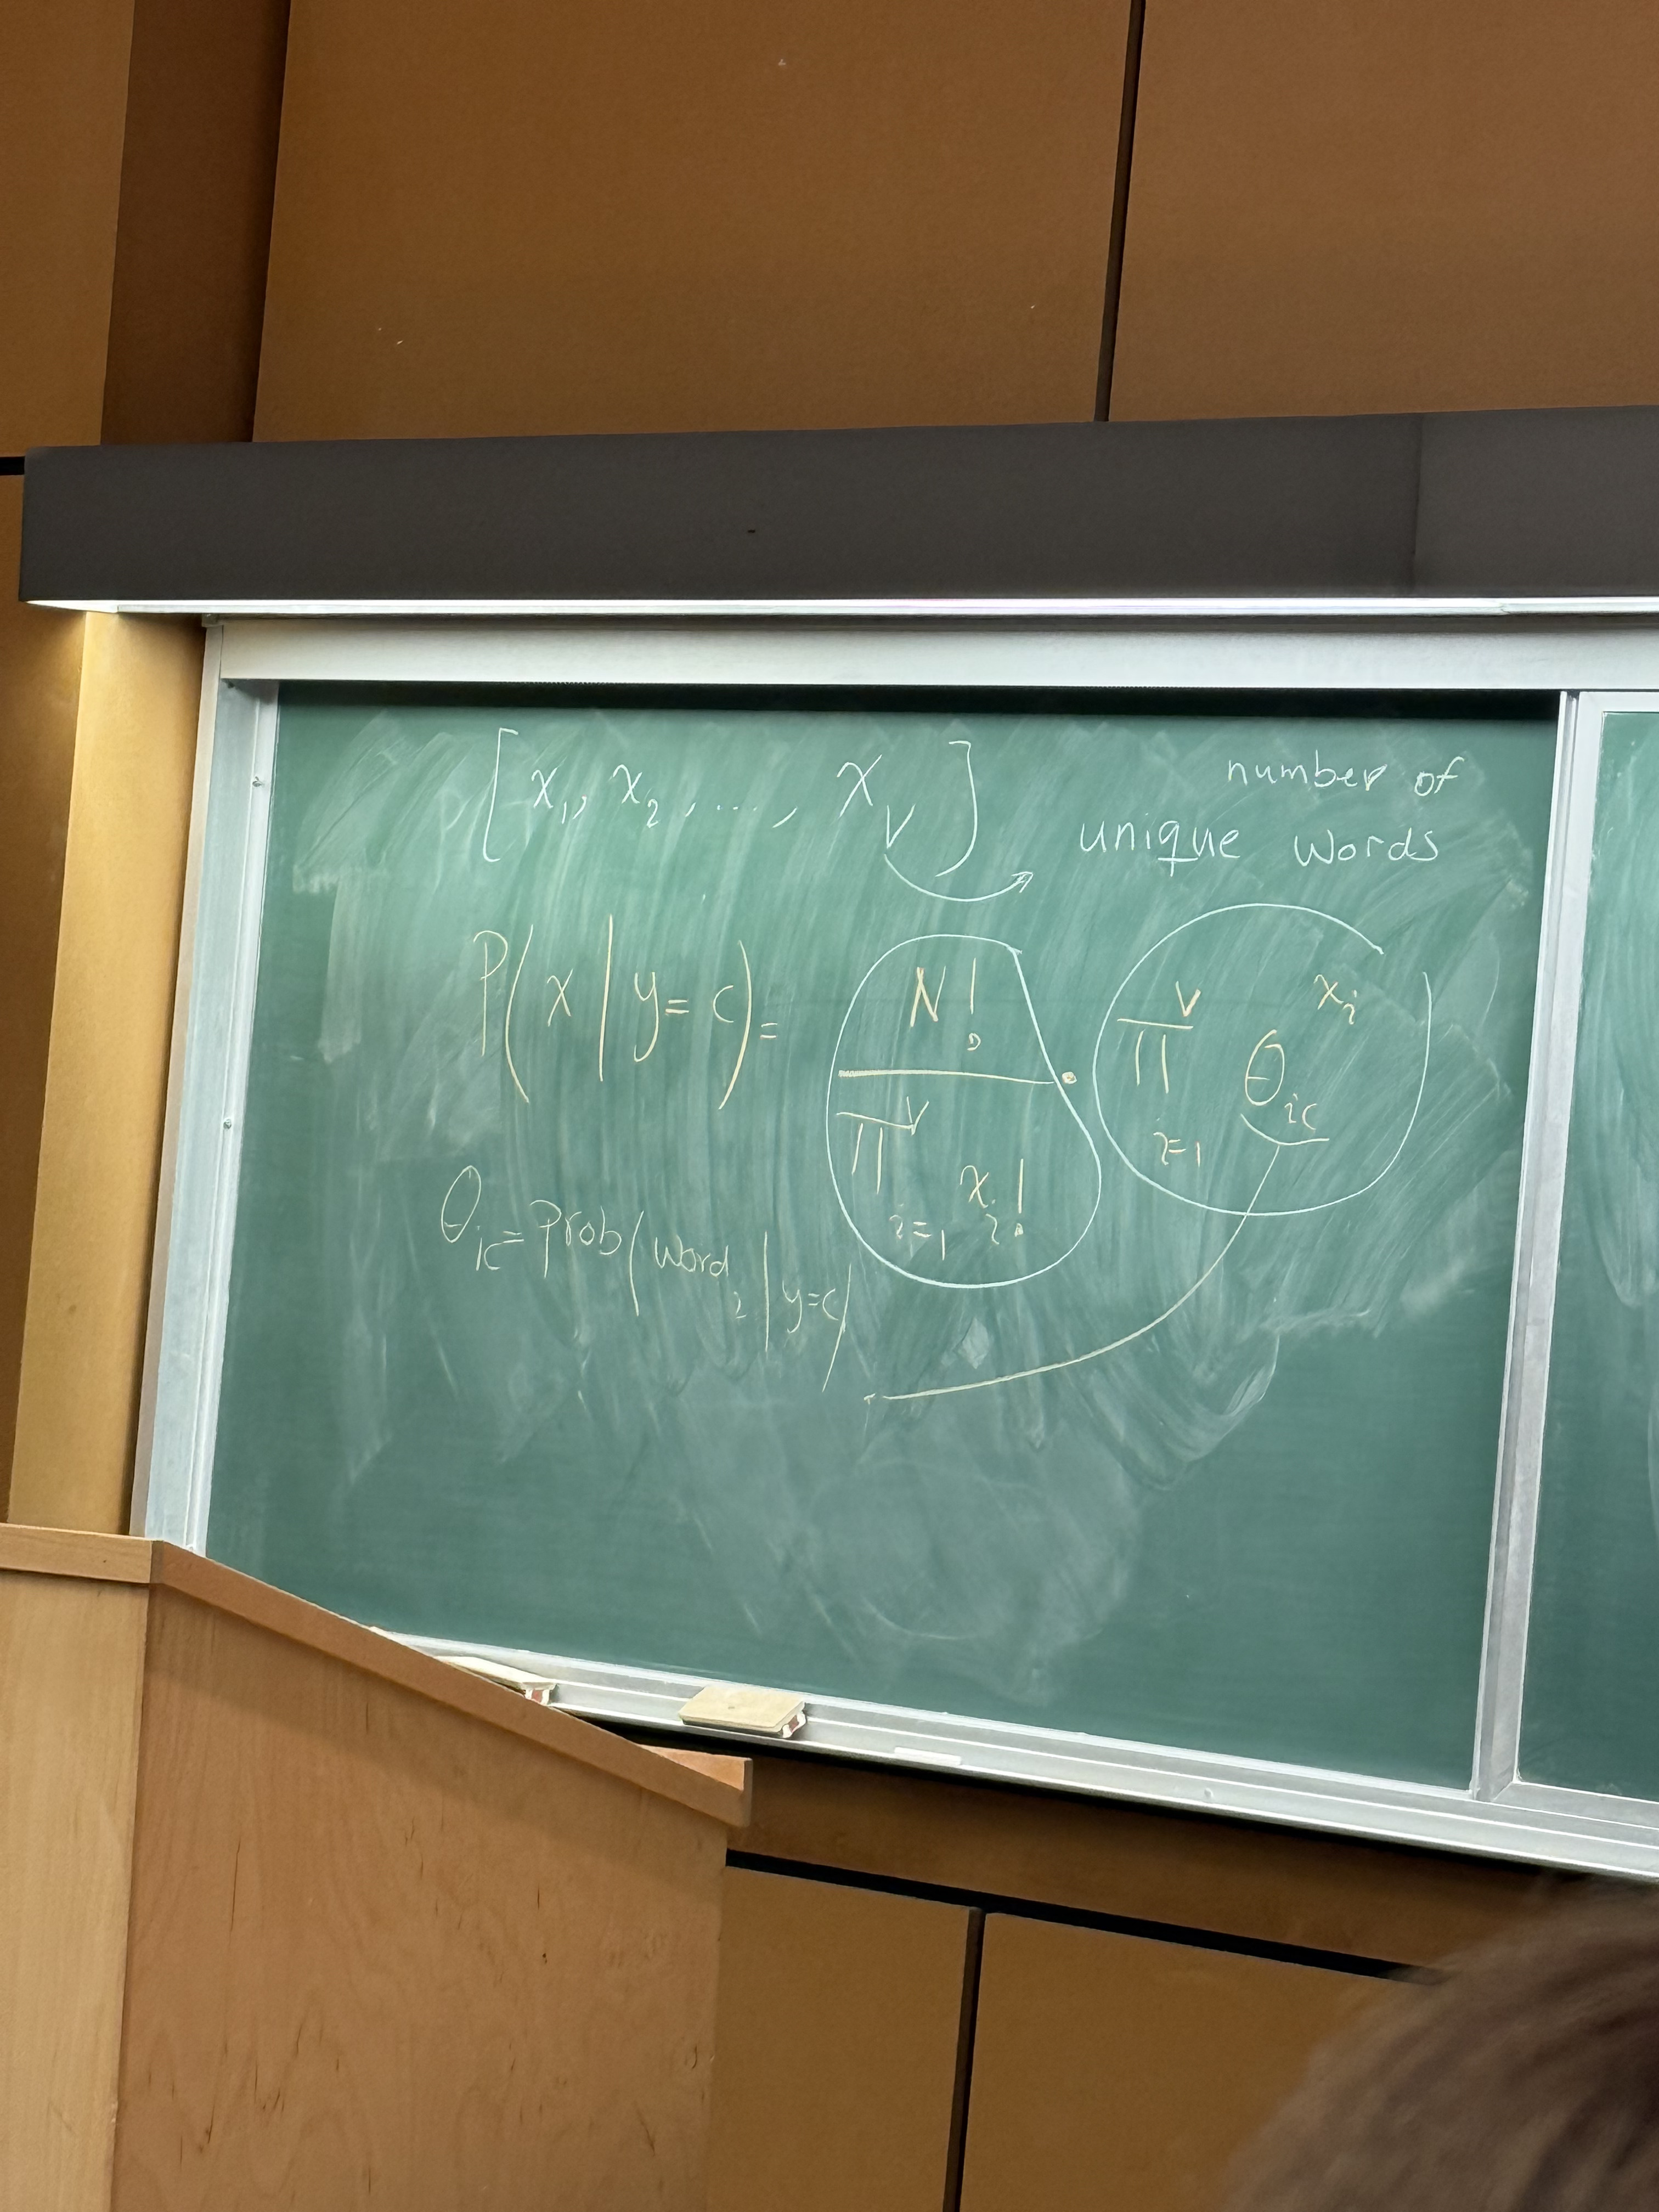 [x₁, x₂, ...., x_V] number of
unique words
P(x | y = c) = N! / ∏_{i=1}^{V} x_i! · ∏_{i=1}^{V} θ_{ic}^{x_i}
θ_{ic} = Prob(word_i | y=c)